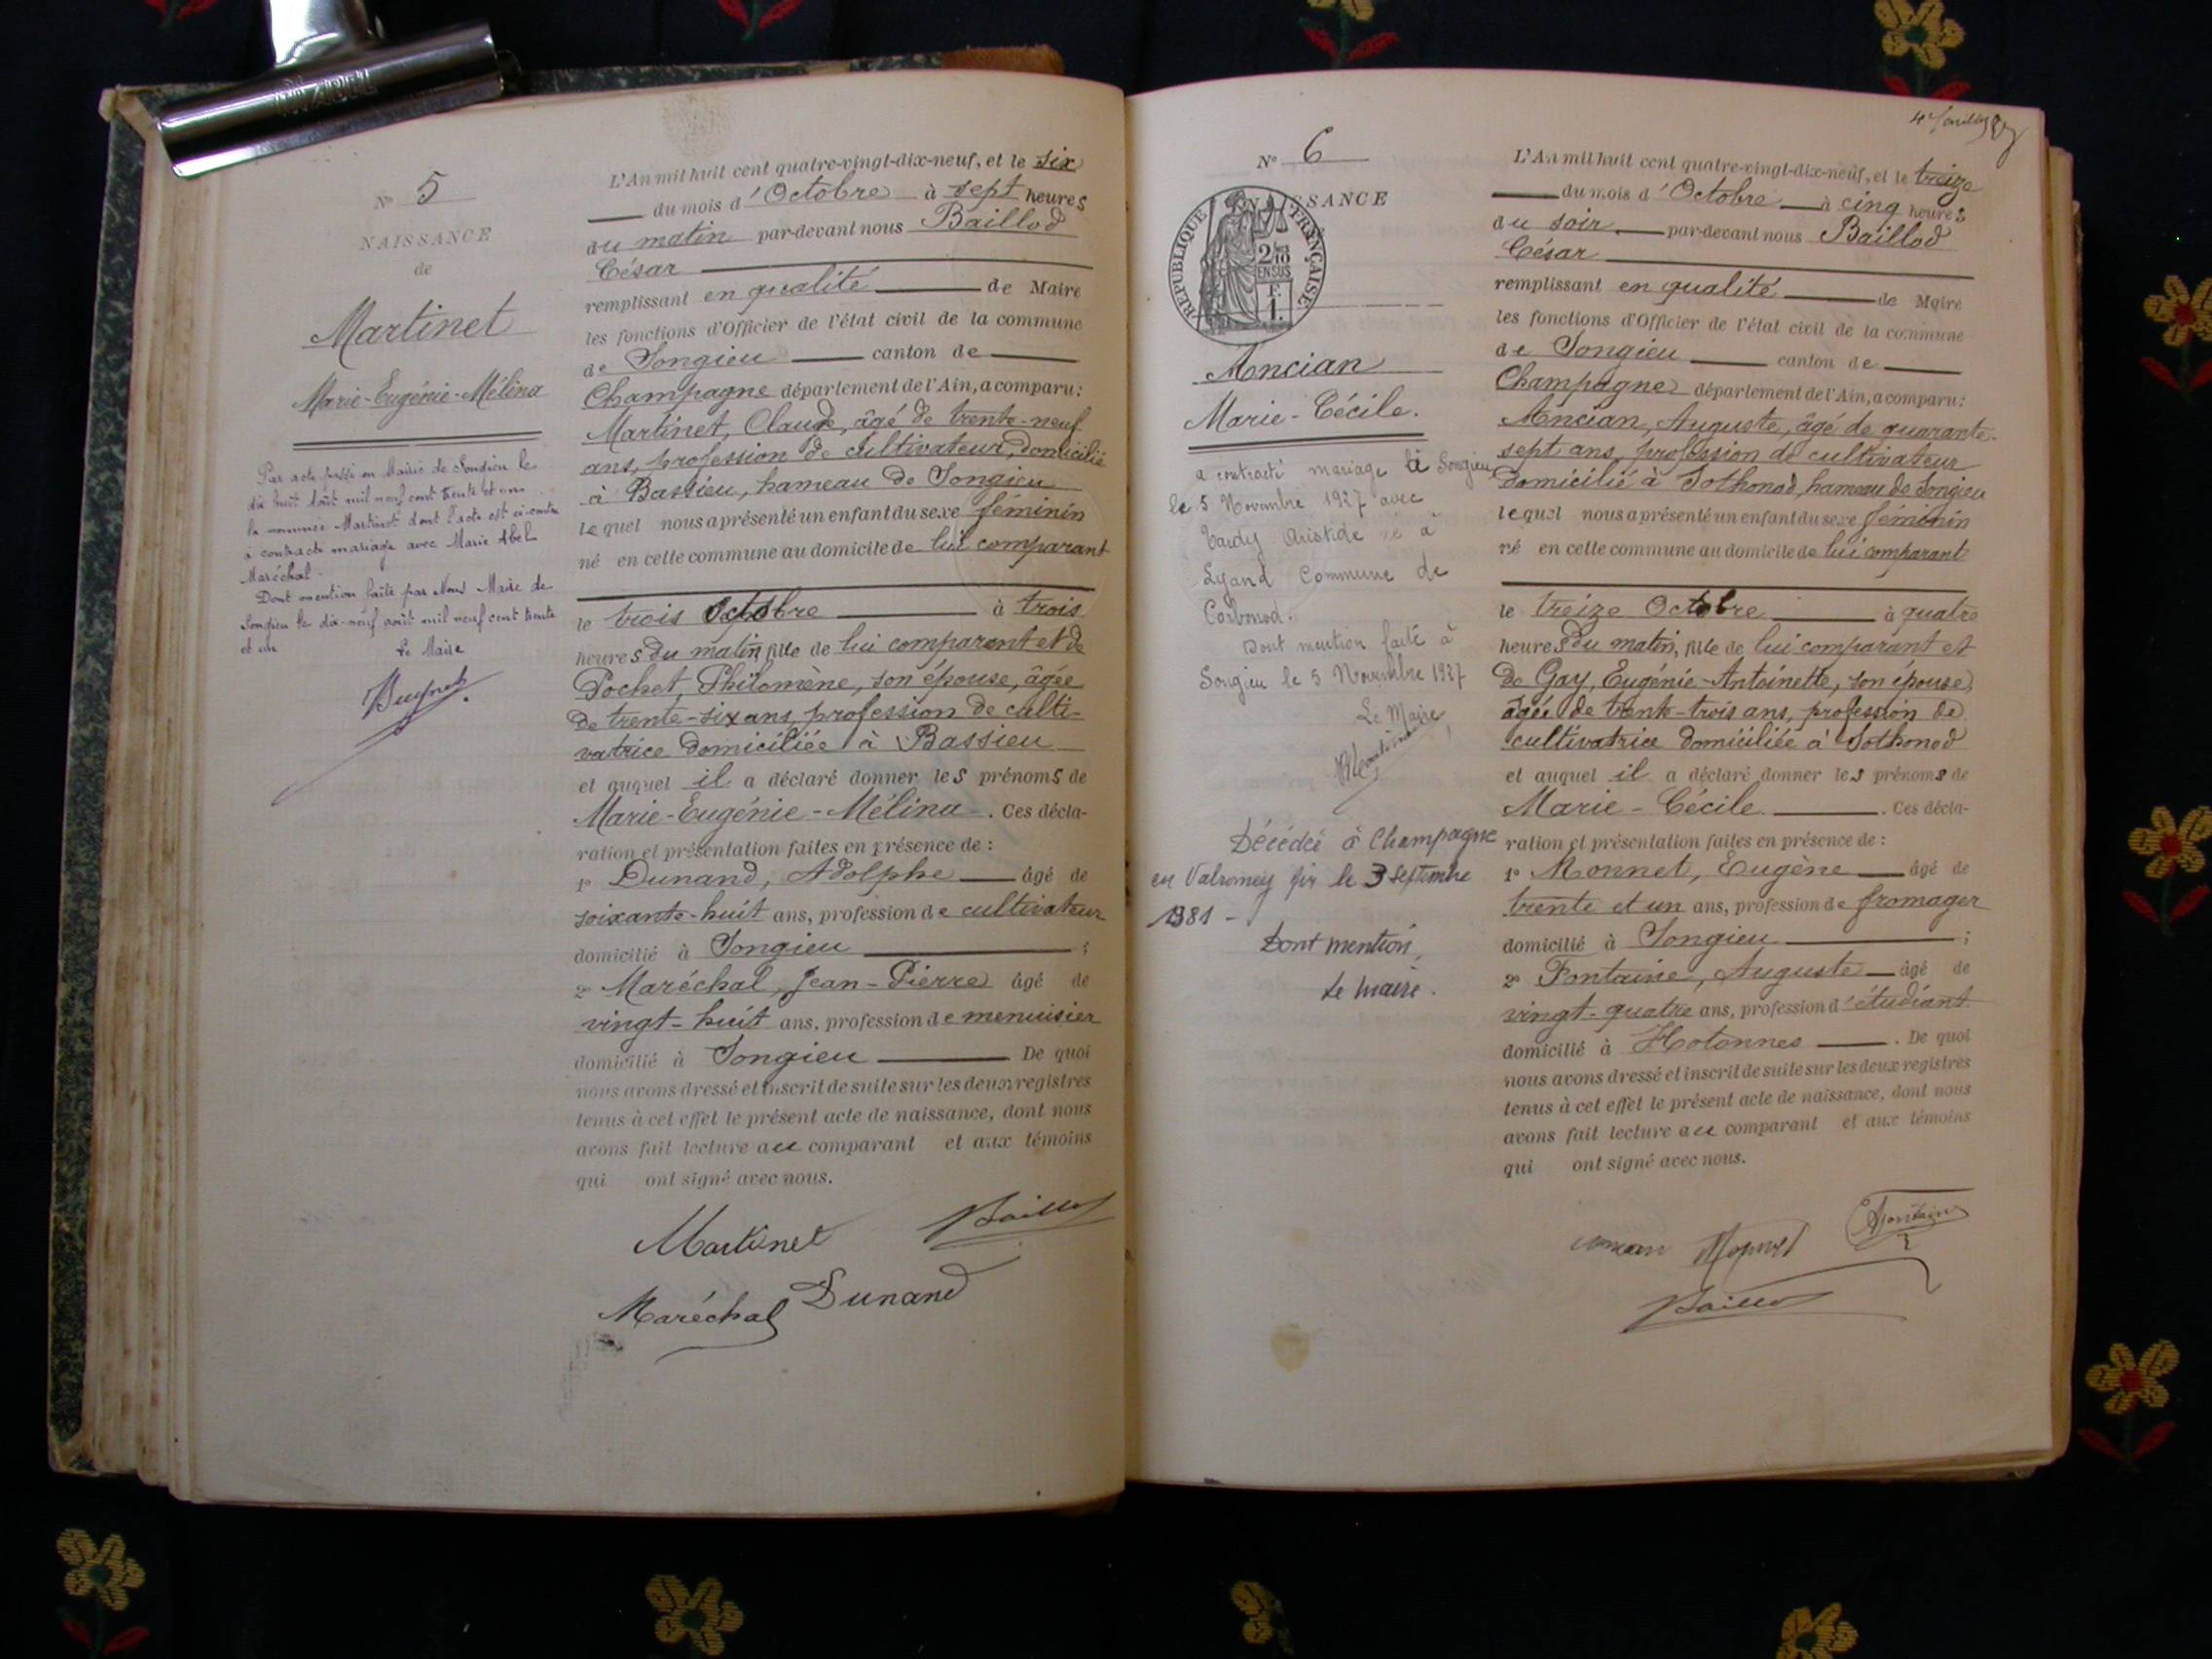 N° 5
NAISSANCE
de
Martinet
Marie-Eugénie-Mélina
Par acte passé en Mairie de Songieu le
dix huit août mil neuf cent trente et un
la nommée Martinet dont l'acte est ci-contre
à contracté mariage avec Marie Abel
Maréchal.
Dont mention faite par Nous Maire de
Songieu le dix-neuf août mil neuf cent trente
et un
Le Maire
L'An mil huit cent quatre-vingt-dix-neuf, et le six
du mois d'Octobre à sept heures
du matin par-devant nous Baillod
César
remplissant en qualité de Maire
les fonctions d'Officier de l'état civil de la commune
de Songieu canton de
Champagne département de l'Ain, a comparu:
Martinet, Claude, âgé de trente-neuf
ans, profession de cultivateur, domicilié
à Bassieu, hameau de Songieu
lequel nous a présenté un enfant du sexe féminin
né en cette commune au domicile de lui comparant
le trois Octobre à trois
heures du matin, fille de lui comparant et de
Pochet, Philomène, son épouse, âgée
de trente-six ans, profession de culti-
vatrice domiciliée à Bassieu
et auquel il a déclaré donner les prénoms de
Marie-Eugénie-Mélina. Ces décla-
ration et présentation faites en présence de :
1° Dunand, Adolphe âgé de
soixante-huit ans, profession de cultivateur
domicilié à Songieu ;
2° Maréchal, Jean-Pierre âgé de
vingt-huit ans, profession de menuisier
domicilié à Songieu De quoi
nous avons dressé et inscrit de suite sur les deux registres
tenus à cet effet le présent acte de naissance, dont nous
avons fait lecture au comparant et aux témoins
qui ont signé avec nous.
Martinet Baillod
Maréchal Dunand
N° 6
SANCE
REPUBLIQUE FRANÇAISE
2/10
EN SUS
F.
1.
Ancian
Marie-Cécile.
a contracté mariage à Songieu
le 5 Novembre 1927 avec
Tardy Aristide né à
Lyand Commune de
Corbonod.
Dont mention faite à
Songieu le 5 Novembre 1927
Le Maire,
Décédée à Champagne
en Valromey le 3 Septembre
1981 -
Dont mention,
Le maire.
L'An mil huit cent quatre-vingt-dix-neuf, et le treize
du mois d'Octobre à cinq heures
du soir par-devant nous Baillod
César
remplissant en qualité de Maire
les fonctions d'Officier de l'état civil de la commune
de Songieu canton de
Champagne département de l'Ain, a comparu:
Ancian, Auguste, âgé de quarante-
sept ans, profession de cultivateur
domicilié à Sothonod, hameau de Songieu
lequel nous a présenté un enfant du sexe féminin
né en cette commune au domicile de lui comparant
le treize Octobre à quatre
heures du matin, fille de lui comparant et
de Gay, Eugénie-Antoinette, son épouse,
âgée de trente-trois ans, profession de
cultivatrice domiciliée à Sothonod
et auquel il a déclaré donner les prénoms de
Marie-Cécile. Ces décla-
ration et présentation faites en présence de :
1° Monnet, Eugène âgé de
trente et un ans, profession de fromager
domicilié à Songieu ;
2° Fontaine, Auguste âgé de
vingt-quatre ans, profession d'étudiant
domicilié à Hotonnes. De quoi
nous avons dressé et inscrit de suite sur les deux registres
tenus à cet effet le présent acte de naissance, dont nous
avons fait lecture au comparant et aux témoins
qui ont signé avec nous.
Ancian Monnet Fontaine
Baillod